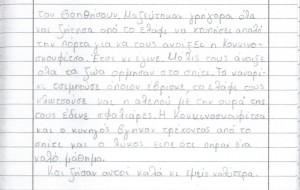 τον βοηθήσουν. Μαζεύτηκαν γρήγορα όλα
και ζήτησε από το ελάφι να χτυπήσει απαλά
την πόρτα για να τους ανοίξει η Κοκκινο-
σκουφίτσα. Έτσι κι έγινε. Μόλις τους άνοιξε
όλα τα ζώα όρμησαν στο σπίτι. Το καναρί-
νι τσιμπούσε όποιον έβρισκε, το ελάφι τους
κλωτσούσε και η αλεπού με την ουρά της
τους έδινε σφαλιάρες. Η Κοκκινοσκουφίτσα
και ο κυνηγός βγήκαν τρέχοντας από το
σπίτι και ο λύκος είπε ότι πήραν ένα
καλό μάθημα.
Και ζήσαν αυτοί καλά κι εμείς καλύτερα.